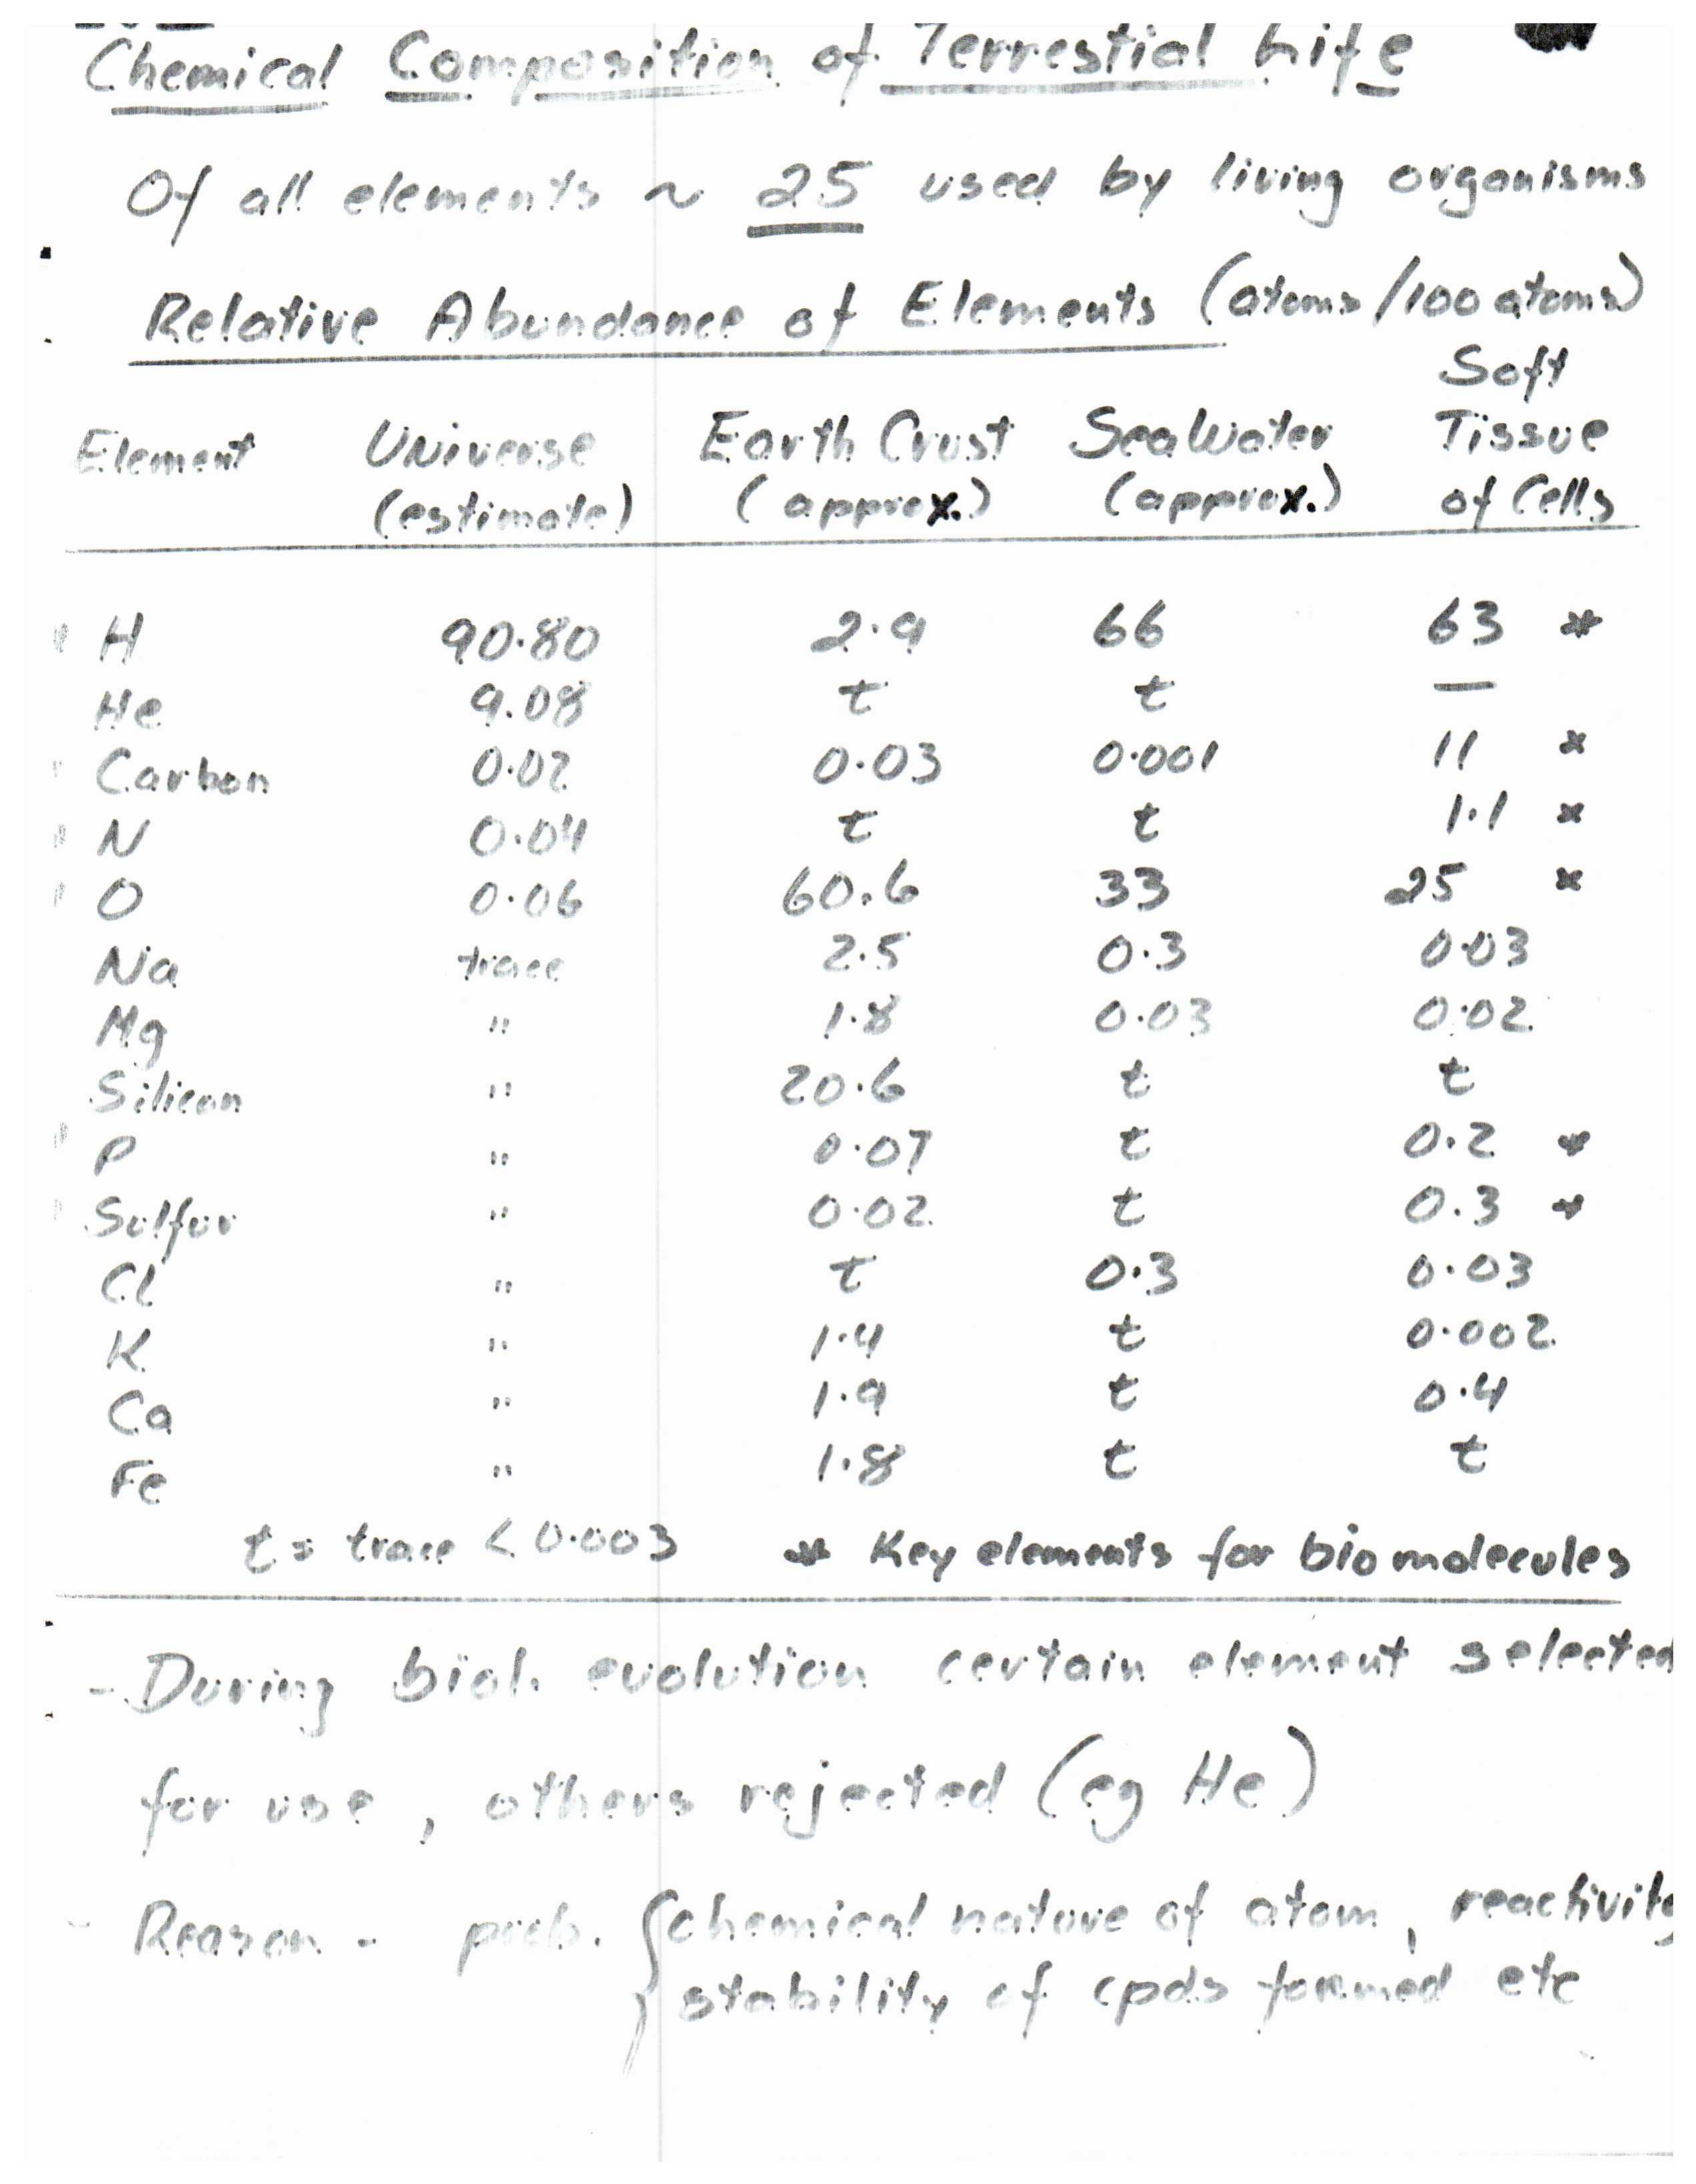 Chemical Composition of Terrestial Life
Of all elements ~ 25 used by living organisms
Relative Abundance of Elements (atoms/100 atoms)
Element Universe (estimate) Earth Crust (approx.) Sea Water (approx.) Soft Tissue of Cells
H 90.80 2.9 66 63 *
He 9.08 t t —
Carbon 0.02 0.03 0.001 11 *
N 0.04 t t 1.1 *
O 0.06 60.6 33 25 *
Na trace 2.5 0.3 0.03
Mg " 1.8 0.03 0.02
Silicon " 20.6 t t
P " 0.07 t 0.2 *
Sulfur " 0.02 t 0.3 *
Cl " t 0.3 0.03
K " 1.4 t 0.002
Ca " 1.9 t 0.4
Fe " 1.8 t t
t = trace < 0.003 * Key elements for biomolecules
- During biol. evolution certain element selected
for use, others rejected (eg He)
- Reason - prob. { chemical nature of atom, reactivity
stability of cpds formed etc